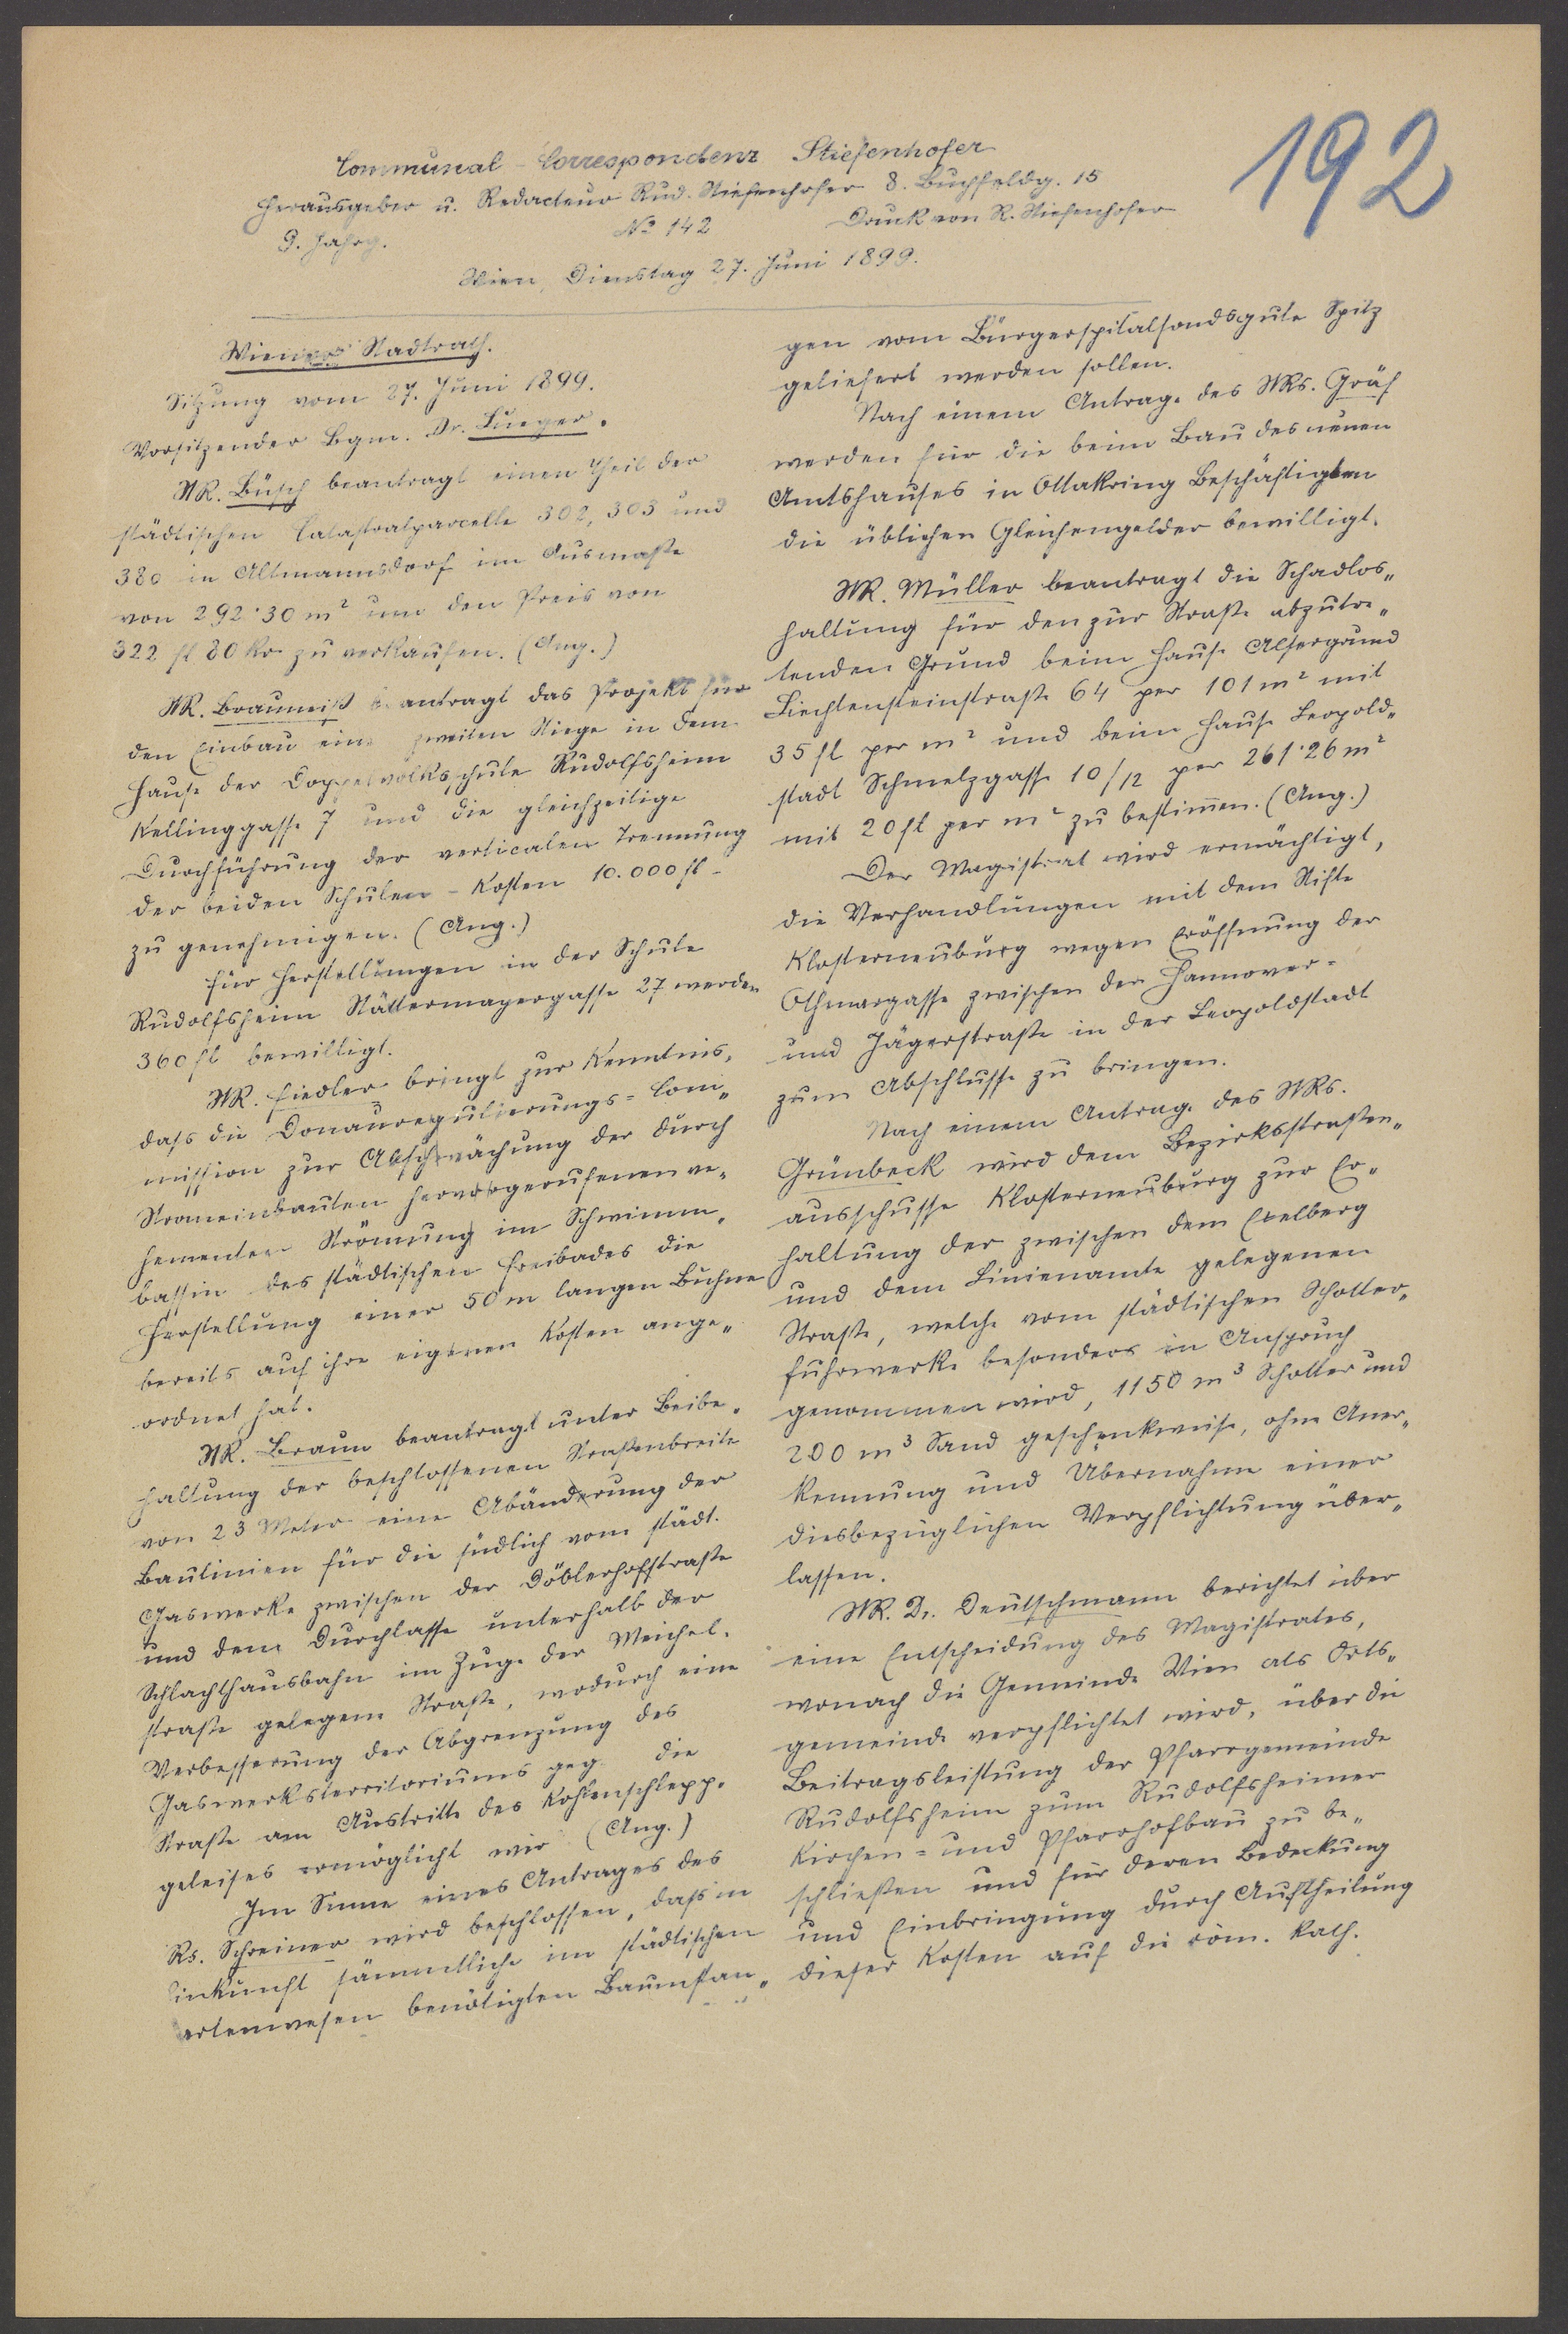 192
Communal-Correspondenz Stiefenhofer
Herausgeber u. Redacteur Rud. Stiefenhofer 8. Buchfeldg. 15
9. Jahrg. No 142 Druck von R. Stiefenhofer
Wien, Dienstag 27. Juni 1899.
Wiener Stadtrath.
Sitzung vom 27. Juni 1899.
Vorsitzender Bgm. Dr. Lueger.
StR. Büsch beantragt einen Theil der
städtischen Catastralparcelle 302, 303 und
380 in Altmannsdorf im Ausmaße
von 292·30 m² um den Preis von
322 fl 80 kr zu verkaufen. (Ang.)
StR. Brauneiß beantragt das Projekt für
den Einbau eine zweiten Stiege in dem
Hause der Doppelvolksschule Rudolfsheim
Kellinggasse 7 und die gleichzeitige
Durchführung der verticalen Trennung
der beiden Schulen - Kosten 10.000 fl -
zu genehmigen. (Ang.)
Für Herstellungen in der Schule
Rudolfsheim Stättermayergasse 27 werden
360 fl bewilligt.
StR. Fiedler bringt zur Kenntnis,
dass die Donauregulierungs=Com„
mission zur Abschwächung der durch
Stromeinbauten hervorgerufenen ve„
hementen Strömung im Schwimm„
bassin des städtischen Freibades die
Herstellung einer 50 m langen Buhne
bereits auf ihre eigenen Kosten ange„
ordnet hat.
StR. Braun beantragt unter Beibe„
haltung der beschlossenen Straßenbreite
von 23 Meter eine Abänderung der
Baulinien für die südlich vom städt.
Gaswerke zwischen der Döblerhofstraße
und dem Durchlasse unterhalb der
Schlachthausbahn im Zuge der Weichel.
straße gelegene Straße, wodurch eine
Verbesserung der Abgrenzung des
Gaswerksterritoriums geg die
Straße am Austritte des Kohlenschlepp.
geleises ermöglicht wir (Ang.)
Im Sinne eines Antrages des
Rs. Schreiner wird beschlossen, dass in
inkunft sämmtliche im städtischen
artenwesen benötigten Baumstan„
gen vom Bürgerspitalfondsgute Spitz
geliefert werden sollen.
Nach einem Antrage des StRs. Gräf
werden für die beim Bau des neuen
Amtshauses in Ottakring Beschäftigten
die üblichen Gleichengelder bewilligt.
StR. Müller beantragt die Schadlos„
haltung für den zur Straße abzutre„
tenden Grund beim Hause Alsergrund
Liechtensteinstraße 64 per 101 m² mit
35 fl per m² und beim Hause Leopold„
stadt Schmelzgasse 10/12 per 261·26 m²
mit 20 fl per m² zu bestimen. (Ang.)
Der Magistrat wird ermächtigt,
die Verhandlungen mit dem Stifte
Klosterneuburg wegen Eröffnung der
Othmargasse zwischen der Hannover-
und Jägerstraße in der Leopoldstadt
zum Abschlusse zu bringen.
Nach einem Antrage des StRs.
Grünbeck wird dem Bezirksstraßen„
ausschusse Klosterneuburg zur Er„
haltung der zwischen dem Exelberg
und dem Linienamte gelegenen
Straße, welche vom städtischen Schotter„
fuhrwerke besonders in Anspruch
genommen wird, 1150 m³ Schotter und
200 m³ Sand geschenkweise, ohne Aner„
kennung und Übernahme einer
diesbezüglichen Verpflichtung über„
lassen.
StR. Dr. Deutschmann berichtet über
eine Entscheidung des Magistrates,
wonach die Gemeinde Wien als Orts„
gemeinde verpflichtet wird, über die
Beitragsleistung der Pfarrgemeinde
Rudolfsheim zum Rudolfsheimer
Kirchen= und Pfarrhofbau zu be„
schließen und für deren Bedeckung
und Einbringung durch Auftheilung
dieser Kosten auf die röm. kath.